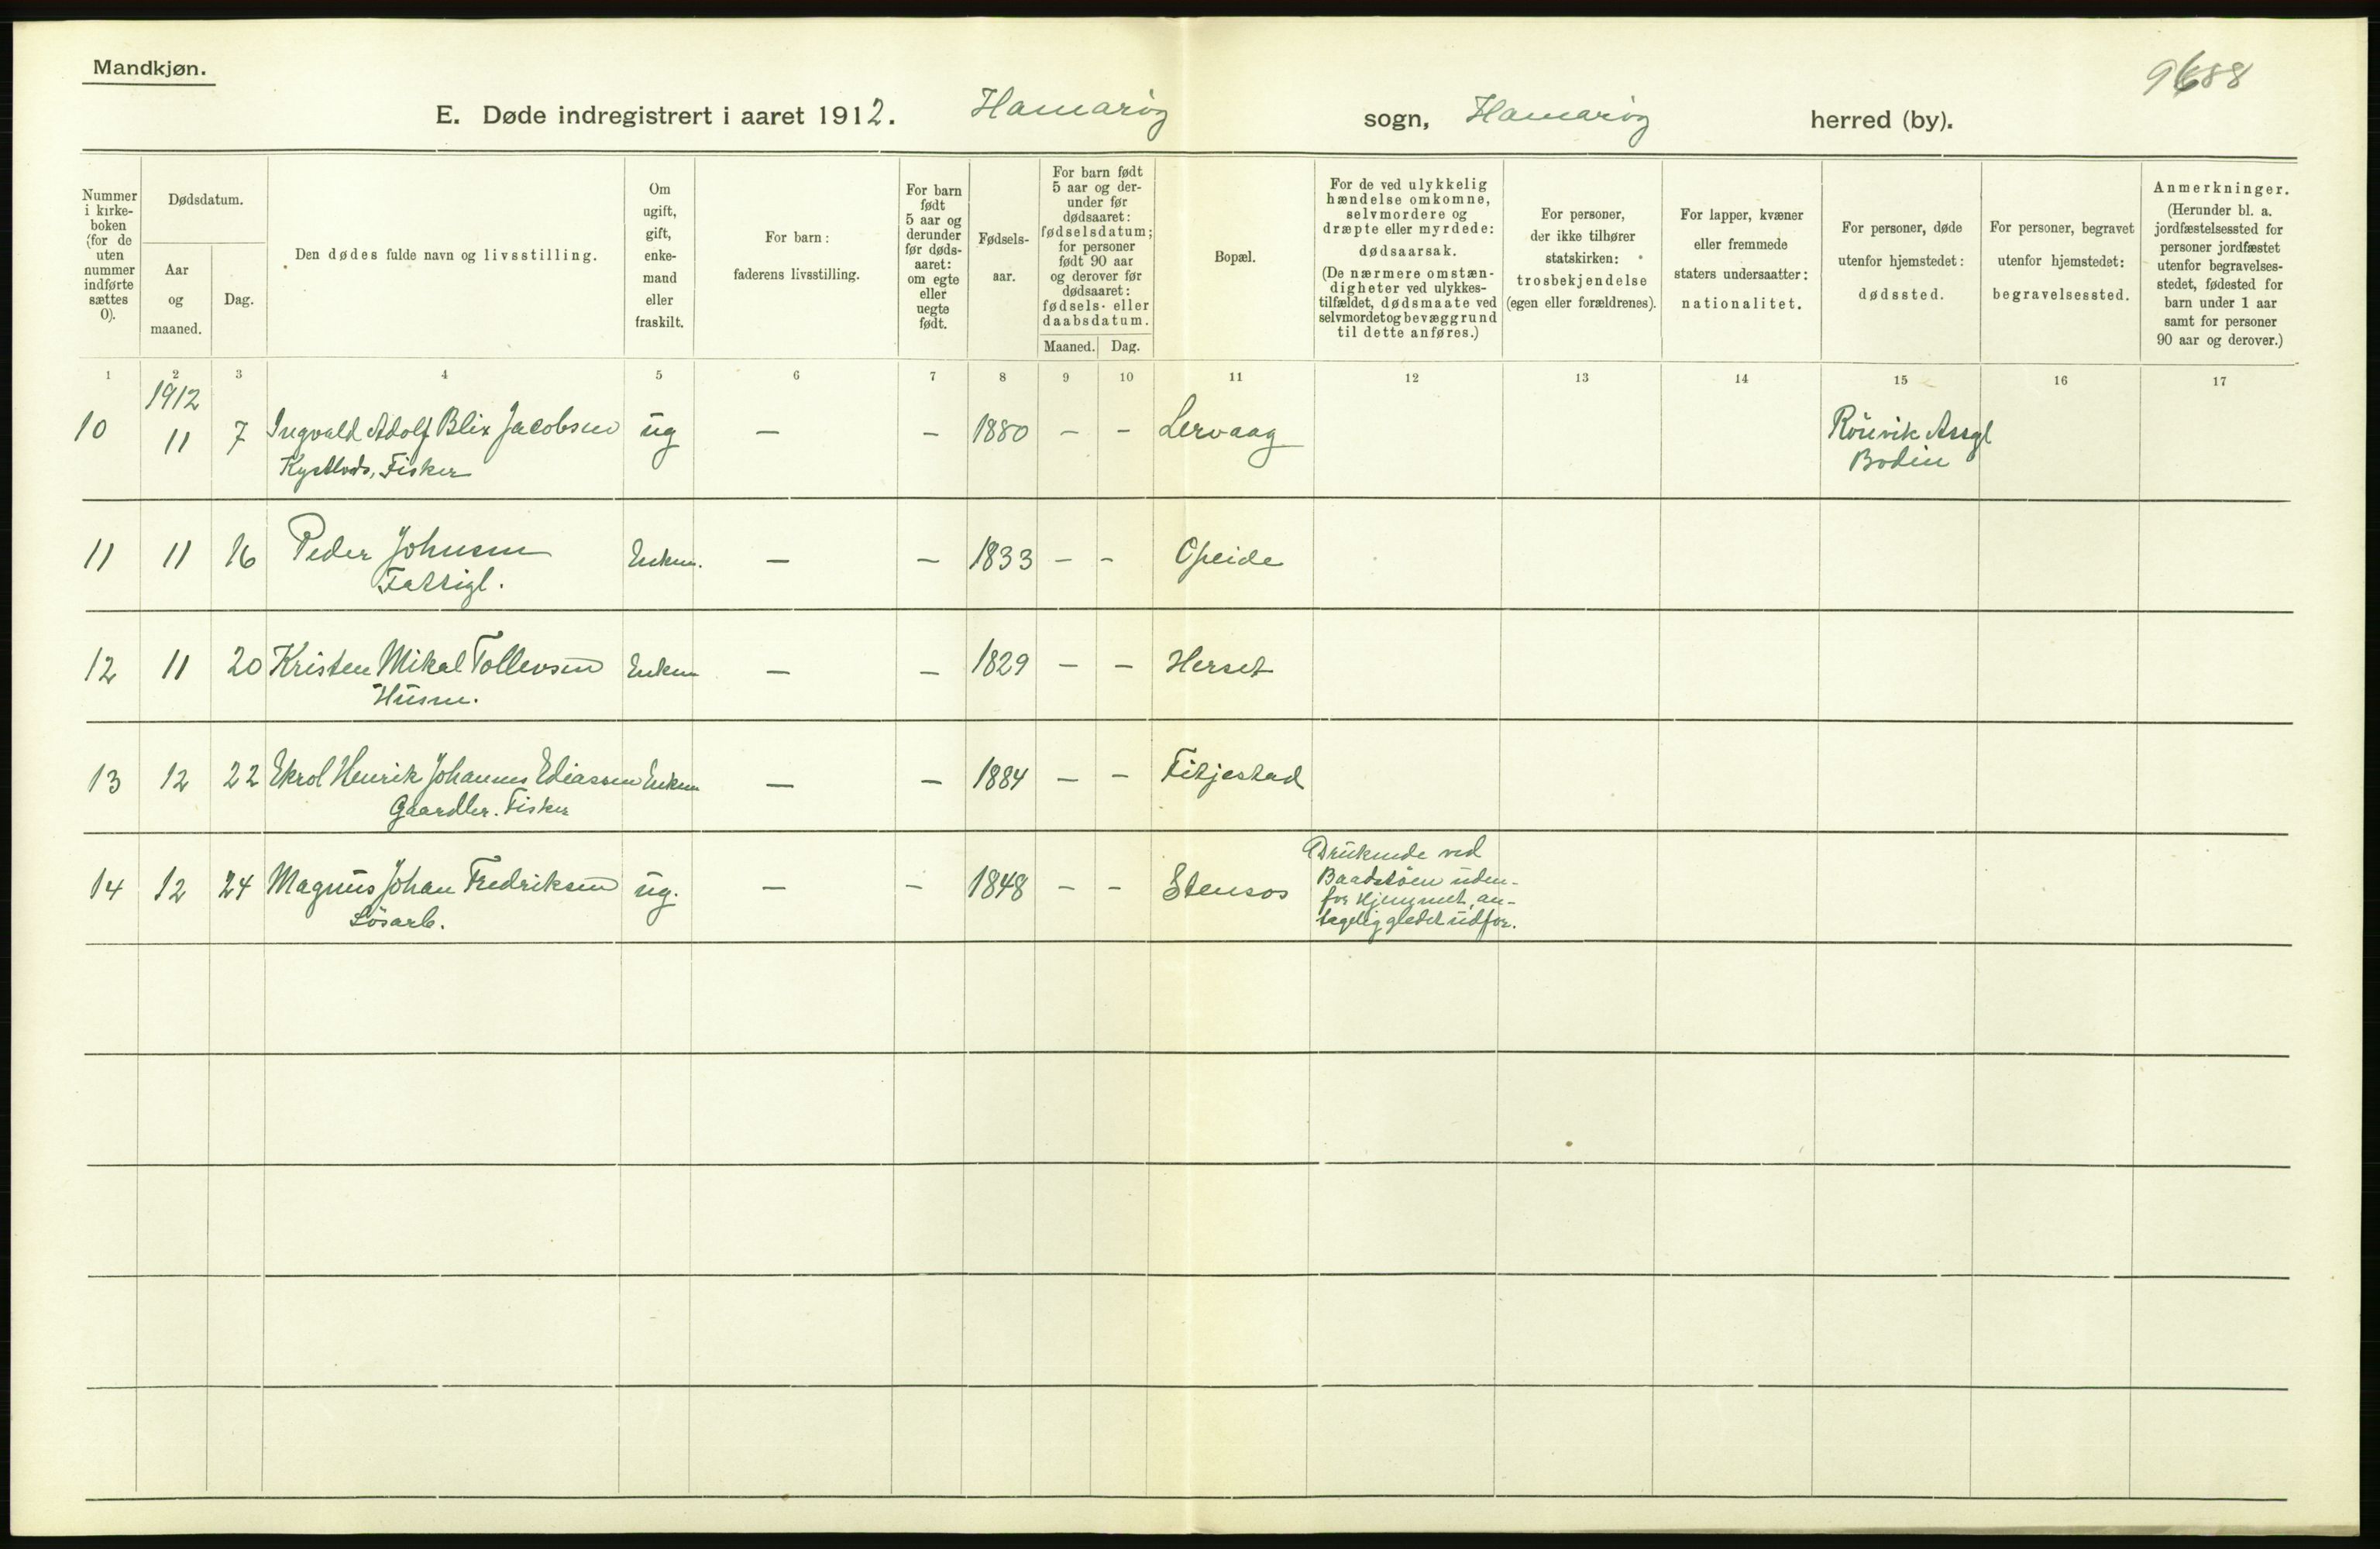 Mandkjøn.
E. Døde indregistrert i aaret 1912. Hamarøy sogn, Hamarøy herred (by).
Nummer i kirke-boken (for de uten nummer indførte sættes 0).
Dødsdatum.
Aar og maaned.
Dag.
Den dødes fulde navn og livsstilling.
Om ugift, gift, enke-mand eller fraskilt.
For barn: faderens livsstilling.
For barn født 5 aar og derunder før døds-aaret: om egte eller uegte født.
Fødsels-aar.
For barn født 5 aar og der-under før dødsaaret: fødselsdatum; for personer født 90 aar og derover før dødsaaret: fødsels- eller daabsdatum.
Maaned. Dag.
Bopæl.
For de ved ulykkelig hændelse omkomne, selvmordere og dræpte eller myrdede: dødsaarsak. (De nærmere omstæn-digheter ved ulykkes-tilfældet, dødsmaate ved selvmordet og bevæggrund til dette anføres.)
For personer, der ikke tilhører statskirken: trosbekjendelse (egen eller forældrenes).
For lapper, kvæner eller fremmede staters undersaatter: nationalitet.
For personer, døde utenfor hjemstedet: dødssted.
For personer, begravet utenfor hjemstedet: begravelsessted.
Anmerkninger. (Herunder bl. a. jordfæstelsessted for personer jordfæstet utenfor begravelses-stedet, fødested for barn under 1 aar samt for personer 90 aar og derover.)
1 2 3 4 5 6 7 8 9 10 11 12 13 14 15 16 17
1912
10 11 7 Ingvald Adolf Blix Jacobsen ug — — 1880 — — Lervaag Rönvik Assyl
Kystlods, Fisker Bodin
11 11 16 Peder Johnsen Enkem. — — 1833 — — Opeide
Fattigl.
12 11 20 Kristen Mikal Tollevsen Enkem — — 1829 — — Herset
Husm.
13 12 22 Ekrol Henrik Johannes Ediassen Enkem — — 1884 — — Fitjestad
Gaardbr. Fisker
14 12 24 Magnus Johan Fredriksen ug. — — 1848 — — Stensos Druknede ved
Løsarb. Baadstöen uden-
for Hjemmet, an-
tagelig gledet udfor.